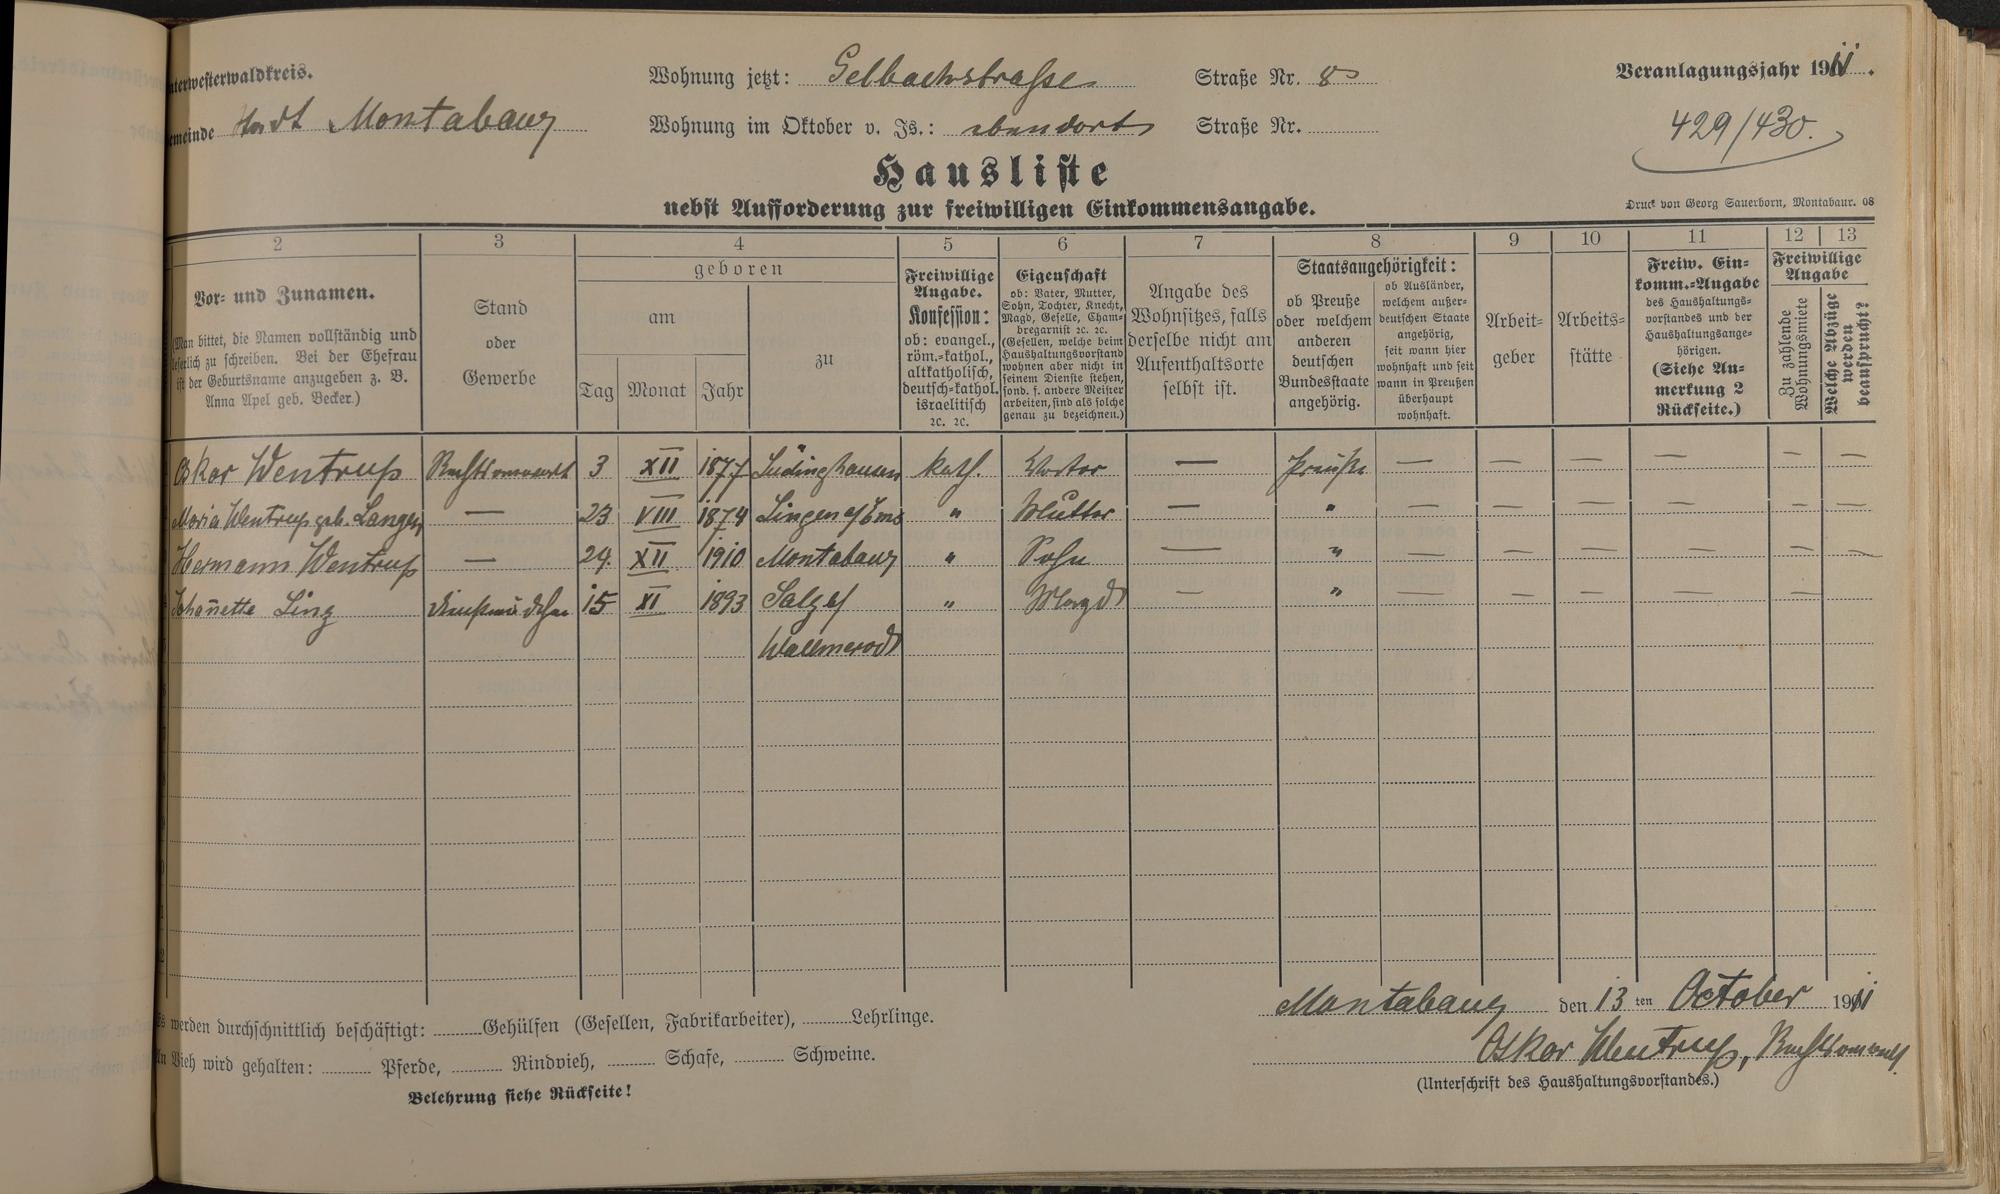 nterwesterwaldkreis.
Wohnung jetzt: Gelbachstraße Straße Nr. 8
Veranlagungsjahr 1911.
emeinde Stadt Montabaur
Wohnung im Oktober v. Js.: ebendort Straße Nr.
429/430.
Hausliste
nebst Aufforderung zur freiwilligen Einkommensangabe.
Druck von Georg Sauerborn, Montabaur. 08
2 3 4 5 6 7 8 9 10 11 12 13
Vor- und Zunamen.
(Man bittet, die Namen vollständig und
leserlich zu schreiben. Bei der Ehefrau
ist der Geburtsname anzugeben z. B.
Anna Apel geb. Becker.)
Stand
oder
Gewerbe
geboren
am
Tag Monat Jahr
zu
Freiwillige
Angabe.
Konfession:
ob: evangel.,
röm.-kathol.,
altkatholisch,
deutsch-kathol.
israelitisch
ꝛc. ꝛc.
Eigenschaft
ob: Vater, Mutter,
Sohn, Tochter, Knecht,
Magd, Geselle, Cham-
bregarnist ꝛc. ꝛc.
(Gesellen, welche beim
Haushaltungsvorstand
wohnen aber nicht in
seinem Dienste stehen,
sond. f. andere Meister
arbeiten, sind als solche
genau zu bezeichnen.)
Angabe des
Wohnsitzes, falls
derselbe nicht am
Aufenthaltsorte
selbst ist.
Staatsangehörigkeit:
ob Preuße
oder welchem
anderen
deutschen
Bundesstaate
angehörig.
ob Ausländer,
welchem außer-
deutschen Staate
angehörig,
seit wann hier
wohnhaft und seit
wann in Preußen
überhaupt
wohnhaft.
Arbeit-
geber
Arbeits-
stätte
Freiw. Ein-
komm.-Angabe
des Haushaltungs-
vorstandes und der
Haushaltungsange-
hörigen.
(Siehe An-
merkung 2
Rückseite.)
Freiwillige
Angabe
Zu zahlende
Wohnungsmiete
Welche Bürde
werden
beansprucht?
Oskar Wentrup Rechtsanwalt 3 XII 1877 Lüdinghausen kath. Vater — Preuße — — — — — —
Maria Wentrup geb. Langen — 23 VIII 1874 Lingen a/Ems " Mutter — " — — — — — —
Hermann Wentrup — 24. XII 1910 Montabaur " Sohn — " — — — — — —
Johanette Ling Dienstmädchen 15 XI 1893 Salz b/ " Magd — " — — — — —
Wallmerod
Es werden durchschnittlich beschäftigt: Gehülfen (Gesellen, Fabrikarbeiter), Lehrlinge.
An Vieh wird gehalten: Pferde, Rindvieh, Schafe, Schweine.
Belehrung siehe Rückseite!
Montabaur den 13 ten October 1911
Oskar Wentrup, Rechtsanwalt.
(Unterschrift des Haushaltungsvorstandes.)